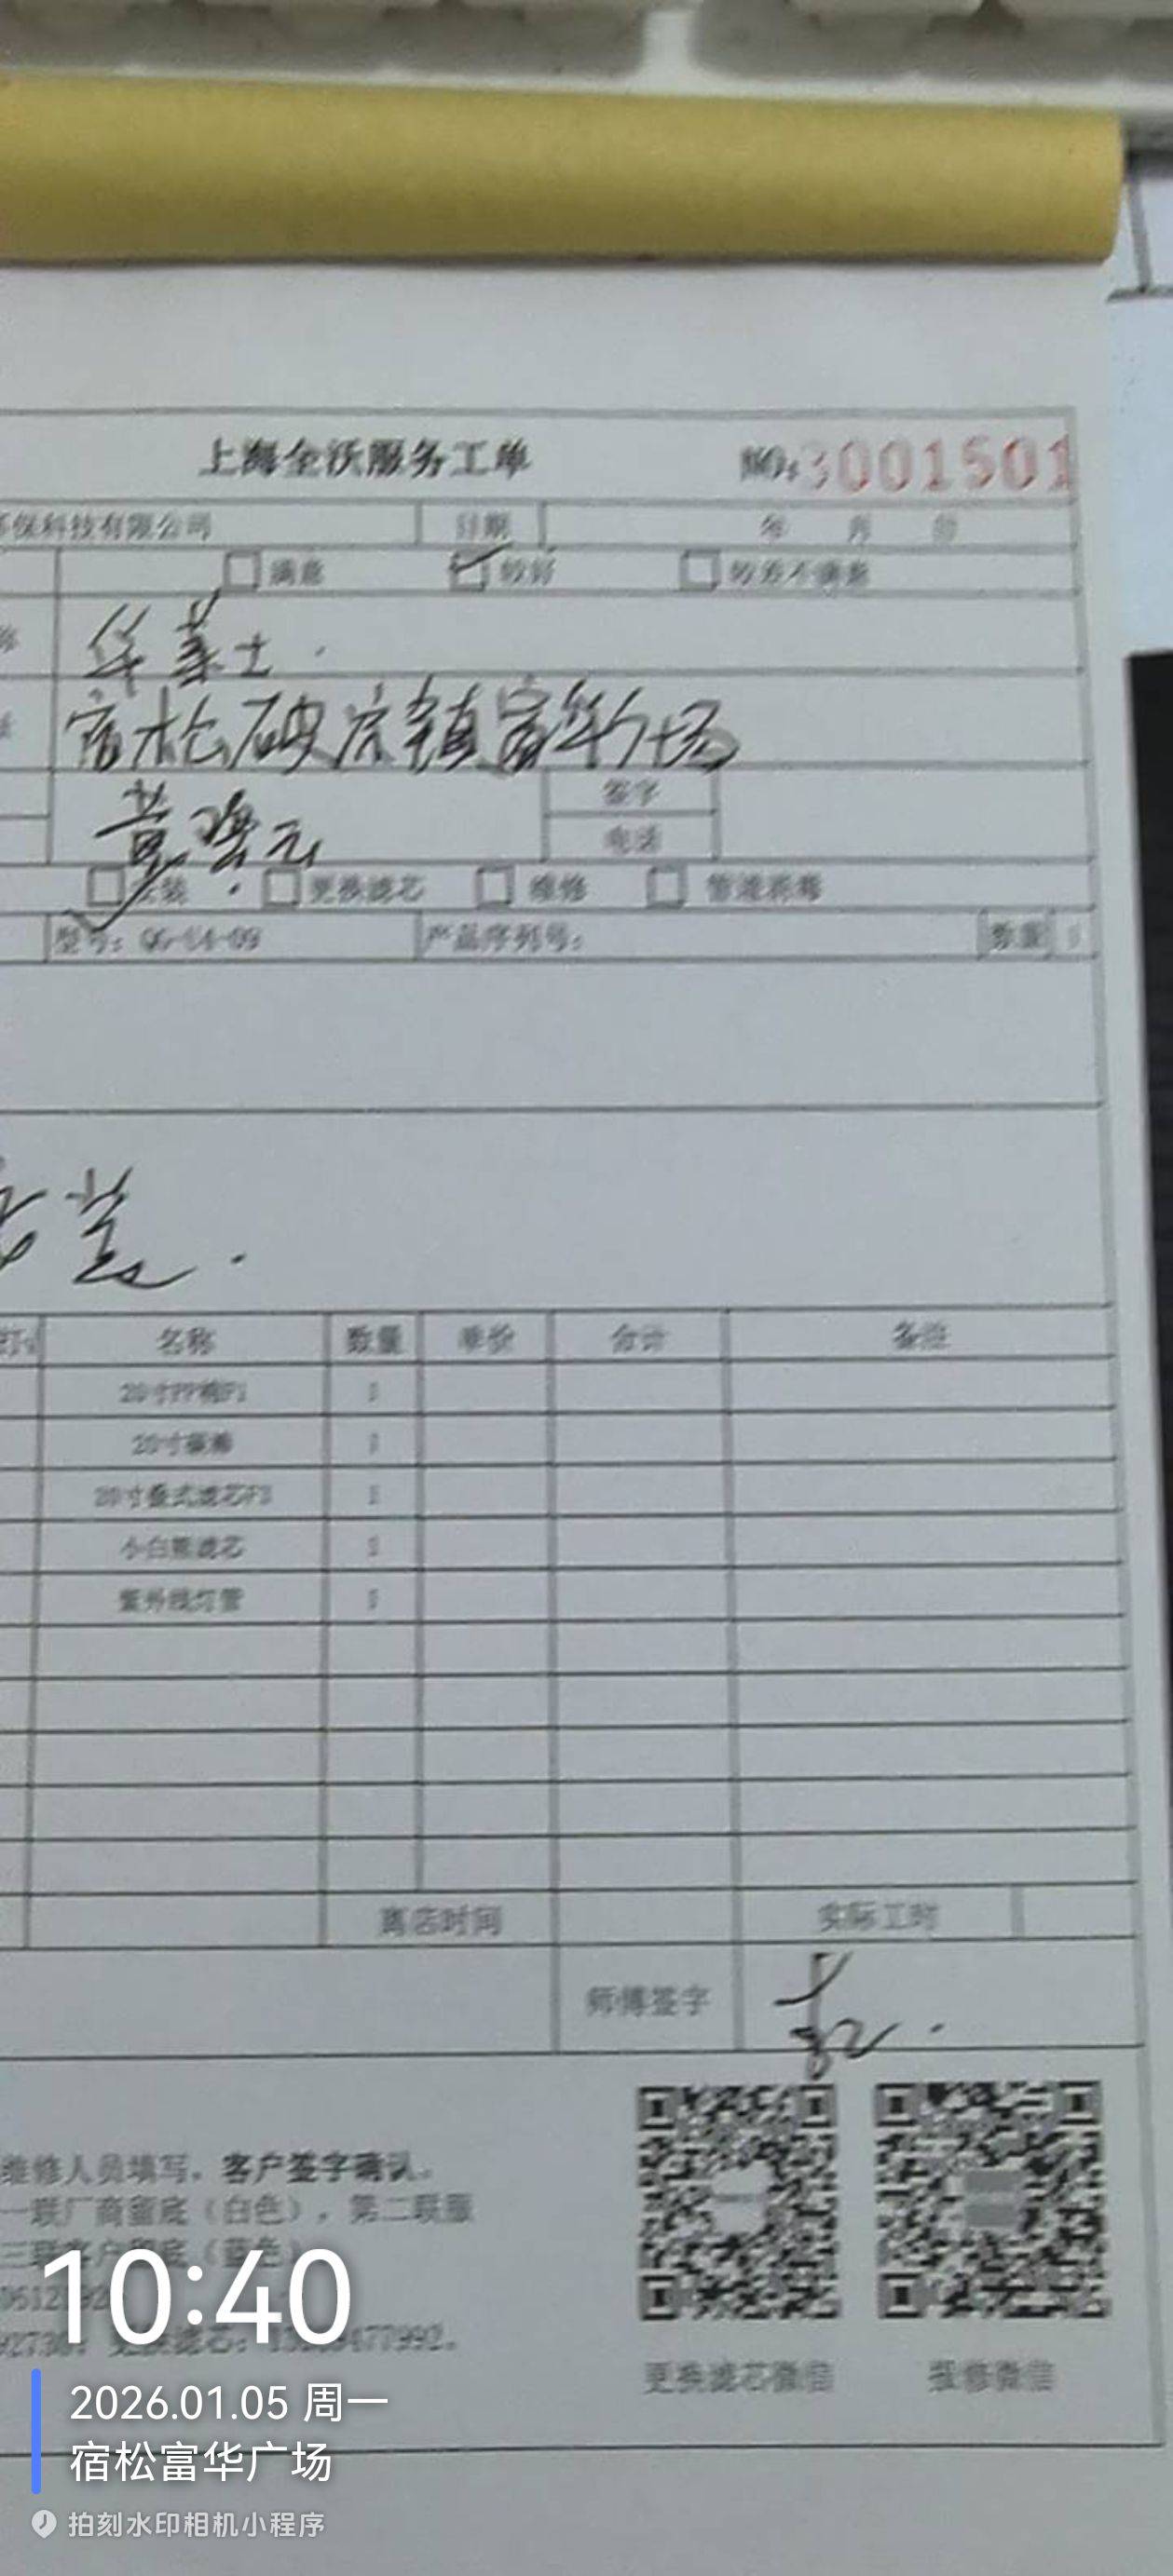 上海全沃服务工单 NO:3001501
环保科技有限公司 日期 年 月 日
满意 较好 较差不满意
华莱士.
宿松破凉镇富华广场
签字
电话
安装 更换滤芯 维修 管道拆移
型号: 产品序列号: 数量 1
安装.
名称 数量 单价 合计 备注
20寸PP棉P1 1
20寸碳棒 1
20寸叠式滤芯P3 1
小白熊滤芯 1
紫外线灯管 1
离店时间 实际工时
师傅签字
维修人员填写，客户签字确认。
一联厂商留底（白色），第二联服
三联客户留底（蓝色）
更换滤芯微信 报修微信
10:40
2026.01.05 周一
宿松富华广场
拍刻水印相机小程序